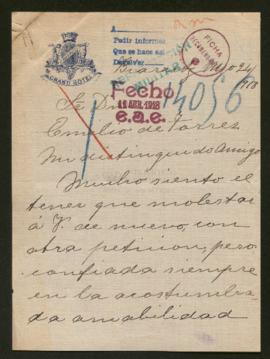 A
Pedir informes
Que se hace así
Devolver
FICHA
GRAND HOTEL
24
1918
Fecho
11 ABR. 1918
e.a.e.
4056
Sr. Dn.
Emilio de Torres
Mi distinguido Amigo
Mucho siento el
tener que molestar
á V. de nuevo, con
otra peticion, pero
confiada siempre
en la acostumbra
da amabilidad